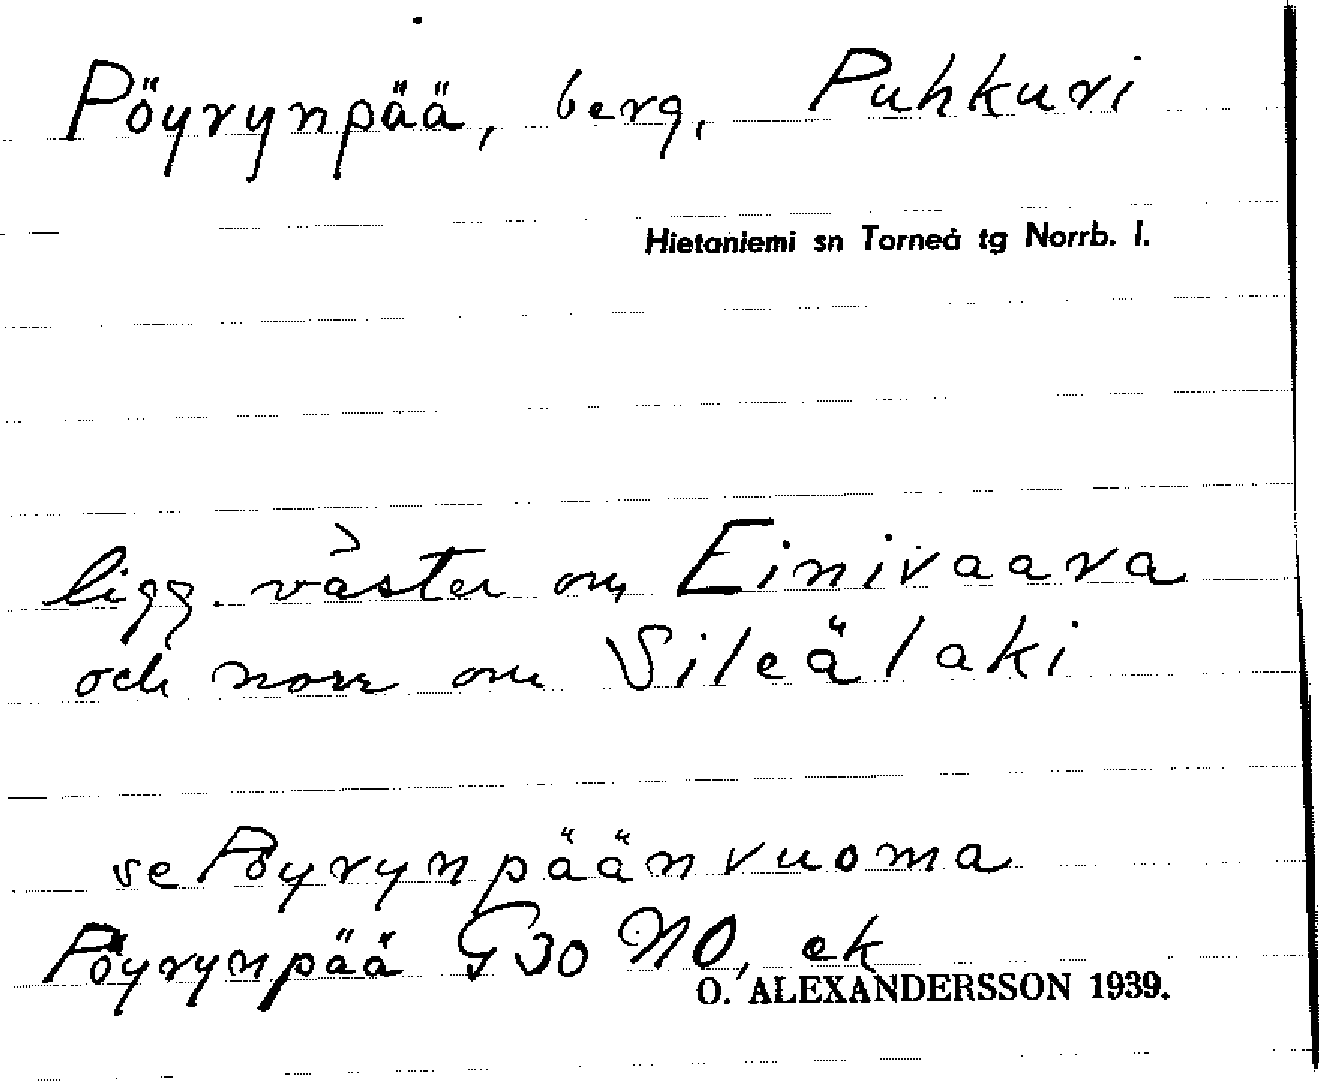 Pöyrynpää, berg, Puhkuri
Hietaniemi sn Torneå tg Norrb. l.
ligg. väster om Einivaara
och norr om Sileälaki
se Pöyrynpäänvuoma
Pöyrynpää G30 NO, ek
O. ALEXANDERSSON 1939.